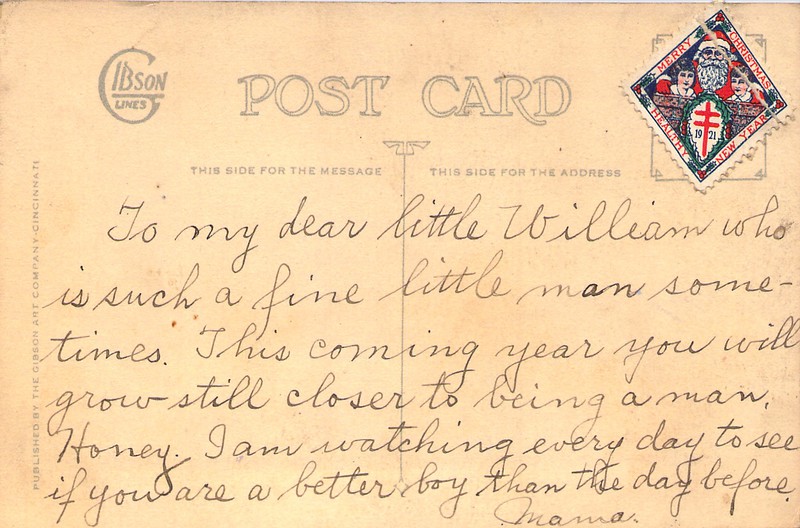 GIBSON
LINES
POST CARD
MERRY CHRISTMAS
HEALTHY NEW YEAR
1921
THIS SIDE FOR THE MESSAGE
THIS SIDE FOR THE ADDRESS
PUBLISHED BY THE GIBSON ART COMPANY-CINCINNATI
To my dear little William who
is such a fine little man some-
times. This coming year you will
grow still closer to being a man,
Honey. I am watching every day to see
if you are a better boy than the day before.
Mama.